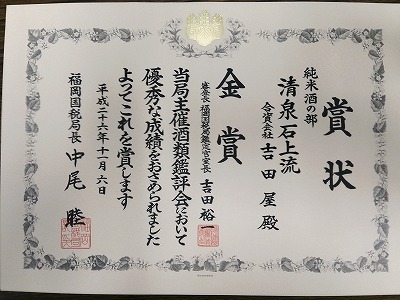 賞状
純米酒の部
清泉石上流
合資会社吉田屋殿
金賞
審査長 福岡国税局鑑定官室長 吉田裕一
当局主催酒類鑑評会において
優秀な成績をおさめられました
よってこれを賞します
平成二十六年十一月六日
福岡国税局長 中尾 睦